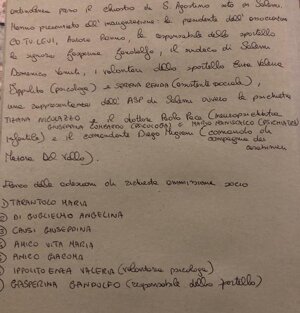 presso il chiostro di S. Agostino sito in Salemi.
Hanno presenziato all'inaugurazione: la presidente dell'associazione
CO.TU.LEVI, Aurora Ranno, la responsabile dello sportello
la signora Gasperina Gandolfo, il sindaco di Salemi
Domenico Venuti, i volontari dello sportello Enza Valeria
Ippolito (psicologa) e SERENA RENDA (assistente sociale),
una rappresentanza dell'ASP di Salemi ovvero la psichiatra
TIZIANA e il dottore Paolo Pace (neuropsichiatra
GIUSEPPINA (PSICOLOGA) E MARIO MANISCALCO (PSICHIATRA)
infantile) e il comandante Diego (comando di
compagnia dei
carabinieri
Mazara Del Vallo).
Elenco delle adesioni di richiesta ammissione socio
1) TARANTOLO MARIA
2) DI GUGLIELMO ANGELINA
3) CAUSI GIUSEPPINA
4) AMICO VITA MARIA
5) AMICO GIACOMA
6) IPPOLITO ENZA VALERIA (volontaria psicologa)
7) GASPERINA GANDOLFO (responsabile dello sportello)